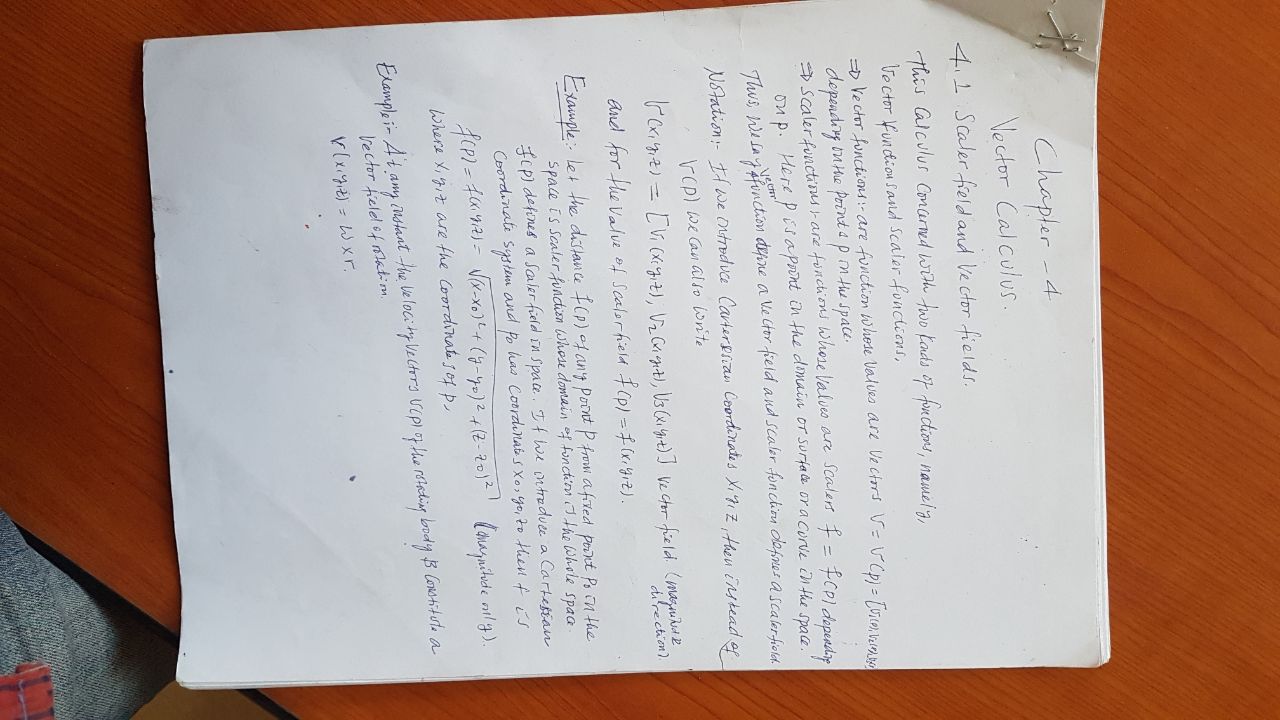 Chapter - 4
Vector Calculus.
4.1 Scaler field and Vector fields.
This Calculus Concerned with two kinds of functions, namely,
Vector functions and scaler functions,
⇒ Vector functions:- are function whose values are vectors V = V(p) = [V1(p), V2(p), V3(p)]
depending on the points p in the space.
⇒ Scaler functions:- are functions whose values are scalers f = f(p) depending
on p. Here p is a point in the domain or surface or a curve in the space.
Thus, we say vector function define a vector field and scaler function defines a scaler field.
Notation:- If we introduce Cartersian Coordinates x,y,z then instead of
V(p) we can also write
V(x,y,z) = [V1(x,y,z), V2(x,y,z), V3(x,y,z)] vector field. (magnitude
direction).
and for the value of scaler field f(p) = f(x,y,z).
Example:- let the distance f(p) of any point p from a fixed point P0 in the
space is scaler function whose domain of function is the whole space.
f(p) defines a scaler field in space. If we introduce a Cartesian
Coordinate system and P0 has Coordinates x0, y0, z0 then f is
f(p) = f(x,y,z) = √(x-x0)² + (y-y0)² + (z-z0)² (magnitude only).
Where x,y,z are the Coordinates of p,
Example:- At any instant the velocity vectors V(p) of the rotating body B constitut a
vector field of rotation
V(x,y,z) = w x r.